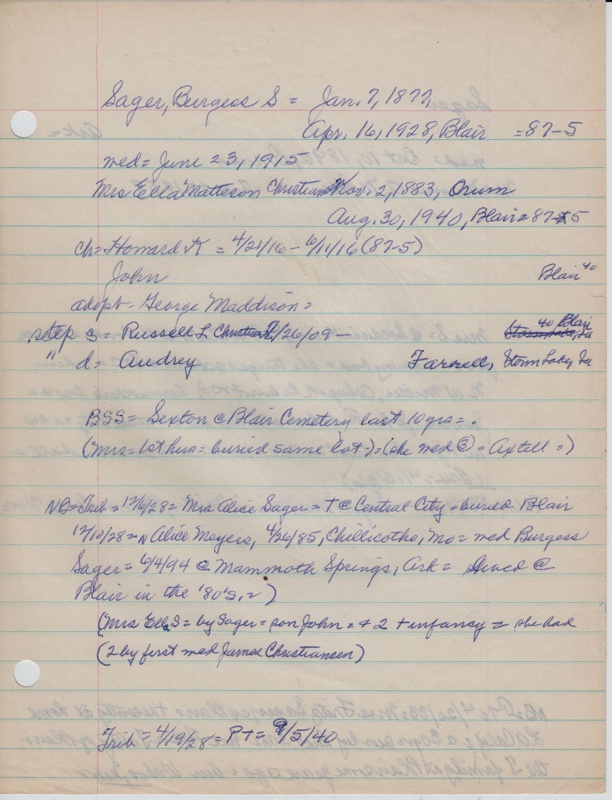 Sager, Burgess S = Jan. 7, 1877
Apr. 16, 1928, Blair = 87-5
med = June 23, 1915
Mrs Ella Matteson Christiansen Nov. 2, 1883, Orum
Aug. 30, 1940, Blair = 87-5
ch = Howard K = 4/21/16 - 6/11/16 (87-5)
John Blair 40
adopt - George Maddison =
step s = Russell L Christiansen /26/09 - 40 Blair
" d = Audrey Farrell, Storm Lake, Ia
BSS = Sexton @ Blair Cemetery last 10 yrs =.
(Mrs = 1st hus = buried same lot) = (she med ③ = Axtell =)
NB = Trib = 12/6/28 = Mrs Alice Sager = † @ Central City = buried Blair
12/10/28 = N Alice Meyers, 4/26/85, Chillicothe, Mo = med Burgess
Sager = 6/4/94 @ Mammoth Springs, Ark = lived @
Blair in the '80's, = )
(Mrs Ella S = by Sager = son John = & 2 † infancy = she had
(2 by first med James Christiansen)
Trib = 4/19/28 = PT = 9/5/40